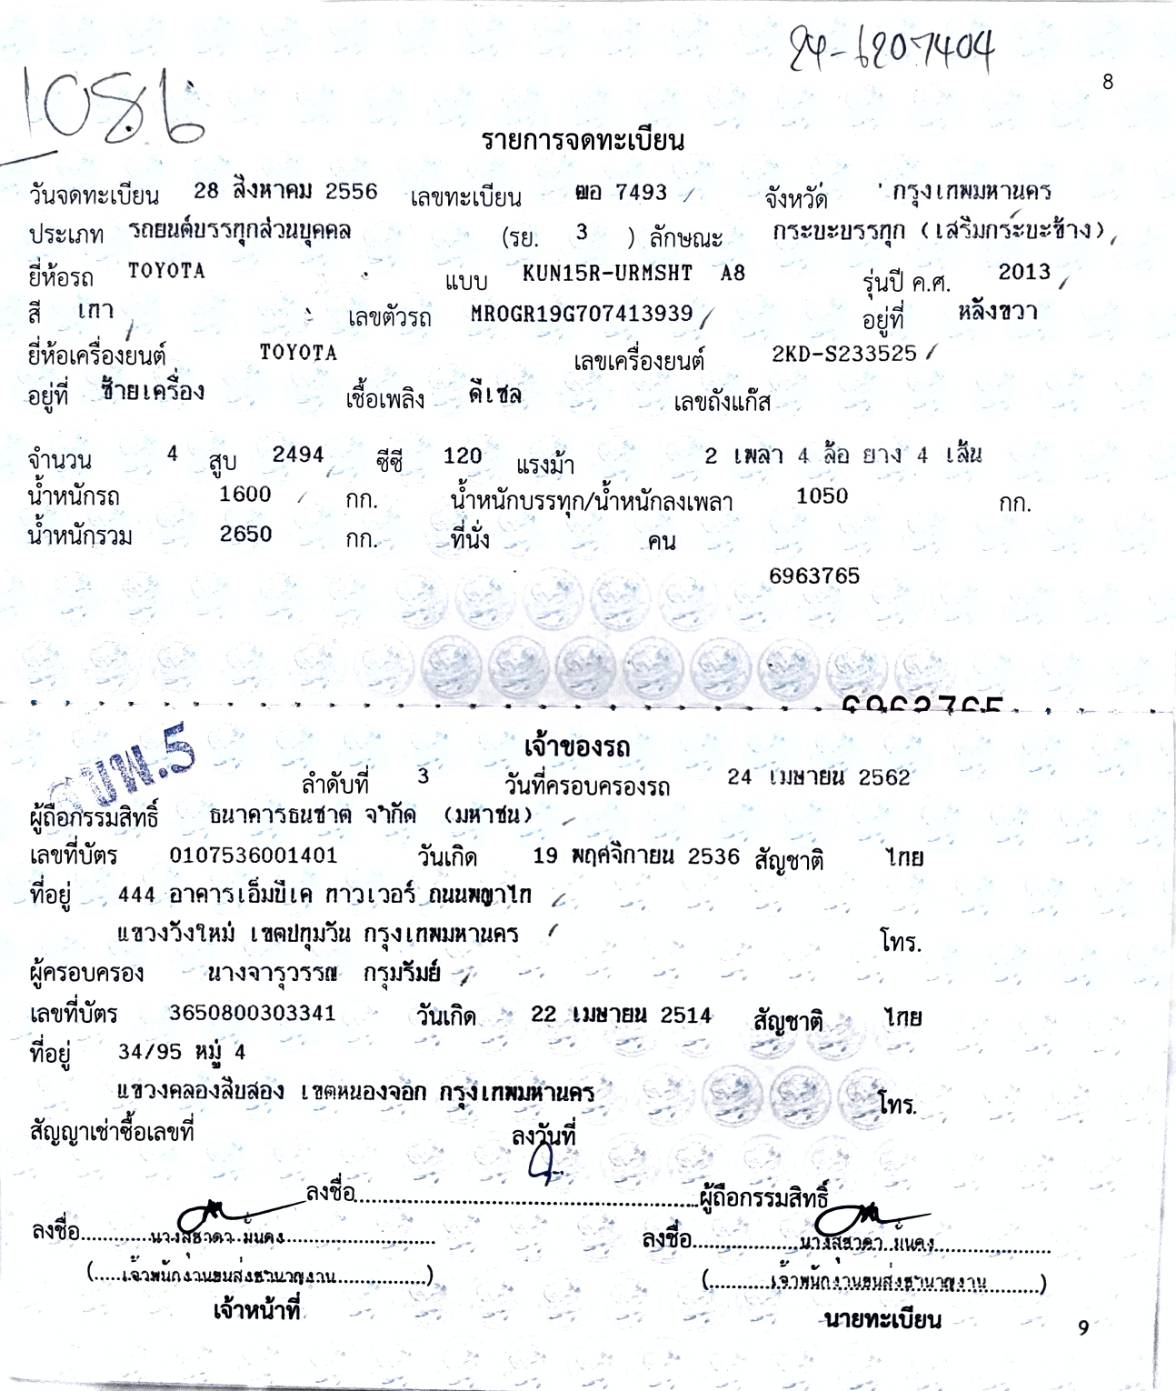 24-6207404
8
1086
รายการจดทะเบียน
วันจดทะเบียน 28 สิงหาคม 2556 เลขทะเบียน ฒอ 7493 จังหวัด กรุงเทพมหานคร
ประเภท รถยนต์บรรทุกส่วนบุคคล (รย. 3 ) ลักษณะ กระบะบรรทุก (เสริมกระบะข้าง)
ยี่ห้อรถ TOYOTA แบบ KUN15R-URMSHT A8 รุ่นปี ค.ศ. 2013
สี เทา เลขตัวรถ MROGR19G707413939 อยู่ที่ หลังขวา
ยี่ห้อเครื่องยนต์ TOYOTA เลขเครื่องยนต์ 2KD-S233525
อยู่ที่ ซ้ายเครื่อง เชื้อเพลิง ดีเซล เลขถังแก๊ส
จำนวน 4 สูบ 2494 ซีซี 120 แรงม้า 2 เพลา 4 ล้อ ยาง 4 เส้น
น้ำหนักรถ 1600 กก. น้ำหนักบรรทุก/น้ำหนักลงเพลา 1050 กก.
น้ำหนักรวม 2650 กก. ที่นั่ง คน
6963765
6963765
สขพ.5
เจ้าของรถ
ลำดับที่ 3 วันที่ครอบครองรถ 24 เมษายน 2562
ผู้ถือกรรมสิทธิ์ ธนาคารธนชาต จำกัด (มหาชน)
เลขที่บัตร 0107536001401 วันเกิด 19 พฤศจิกายน 2536 สัญชาติ ไทย
ที่อยู่ 444 อาคารเอ็มบีเค ทาวเวอร์ ถนนพญาไท
แขวงวังใหม่ เขตปทุมวัน กรุงเทพมหานคร โทร.
ผู้ครอบครอง นางจารุวรรณ กรุมรัมย์
เลขที่บัตร 3650800303341 วันเกิด 22 เมษายน 2514 สัญชาติ ไทย
ที่อยู่ 34/95 หมู่ 4
แขวงคลองสิบสอง เขตหนองจอก กรุงเทพมหานคร โทร.
สัญญาเช่าซื้อเลขที่ ลงวันที่
ลงชื่อ ผู้ถือกรรมสิทธิ์
ลงชื่อ นางสุชาดา มั่นคง ลงชื่อ นางสุชาดา มั่นคง
(เจ้าพนักงานขนส่งชำนาญงาน) (เจ้าพนักงานขนส่งชำนาญงาน)
เจ้าหน้าที่ นายทะเบียน
9